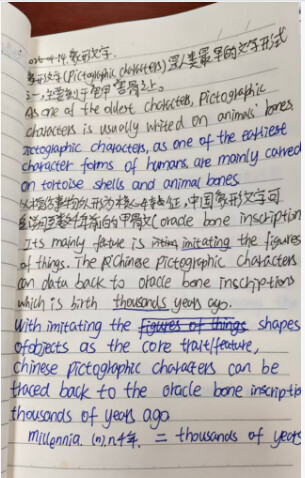 象形文字.
象形文字(Pictographic characters)是人类最早的文字形式
之一,主要刻于龟甲兽骨之上。
As one of the oldest characters, Pictographic
characters is usually writed on animals' bones
Pictographic characters, as one of the earliest
character forms of humans, are mainly carved
on tortoise shells and animal bones
以模仿事物的形为核心特征,中国象形文字可
追溯至数千年前的甲骨文(oracle bone inscription
Its mainly featue is imitating the figures
of things. The Chinese Pictographic characters
can data back to oracle bone inscriptions
which is birth thousands years ago.
With imitating the figures of things shapes
of objects as the core trait/feature,
Chinese pictographic characters can be
traced back to the oracle bone inscriptio
thousands of years ago
millennia. (n). n千年. = thousands of years